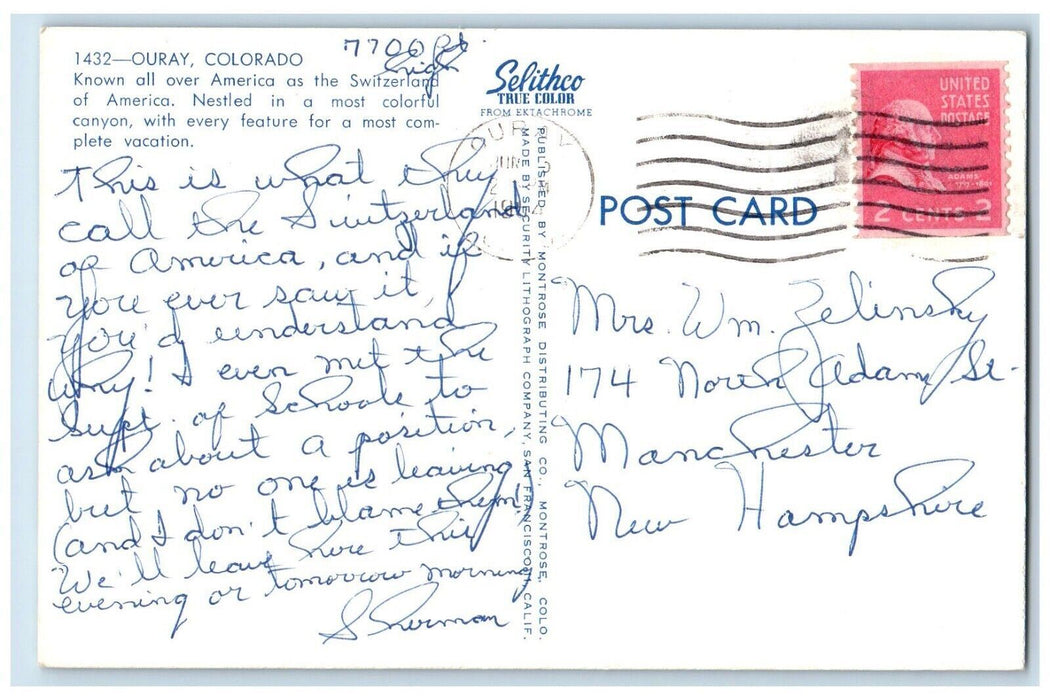 1432—OURAY, COLORADO
Known all over America as the Switzerland
of America. Nestled in a most colorful
canyon, with every feature for a most com-
plete vacation.
7700 ft.
high
Selithco
TRUE COLOR
FROM EKTACHROME
This is what they
call the Switzerland
of America, and if
you ever saw it,
you'd understand
why! I even met the
Supt. of Schools to
ask about a position,
but no one is leaving
(and I don't blame them)
We'll leave here this
evening or tomorrow morning
Sherman
PUBLISHED BY MONTROSE DISTRIBUTING CO., MONTROSE, COLO.
MADE BY SECURITY LITHOGRAPH COMPANY, SAN FRANCISCO, CALIF.
OURAY
JUN
POST CARD
UNITED
STATES
POSTAGE
ADAMS
2 CENTS 2
Mrs. Wm. Zelinsky
174 North Adams St.
Manchester
New Hampshire